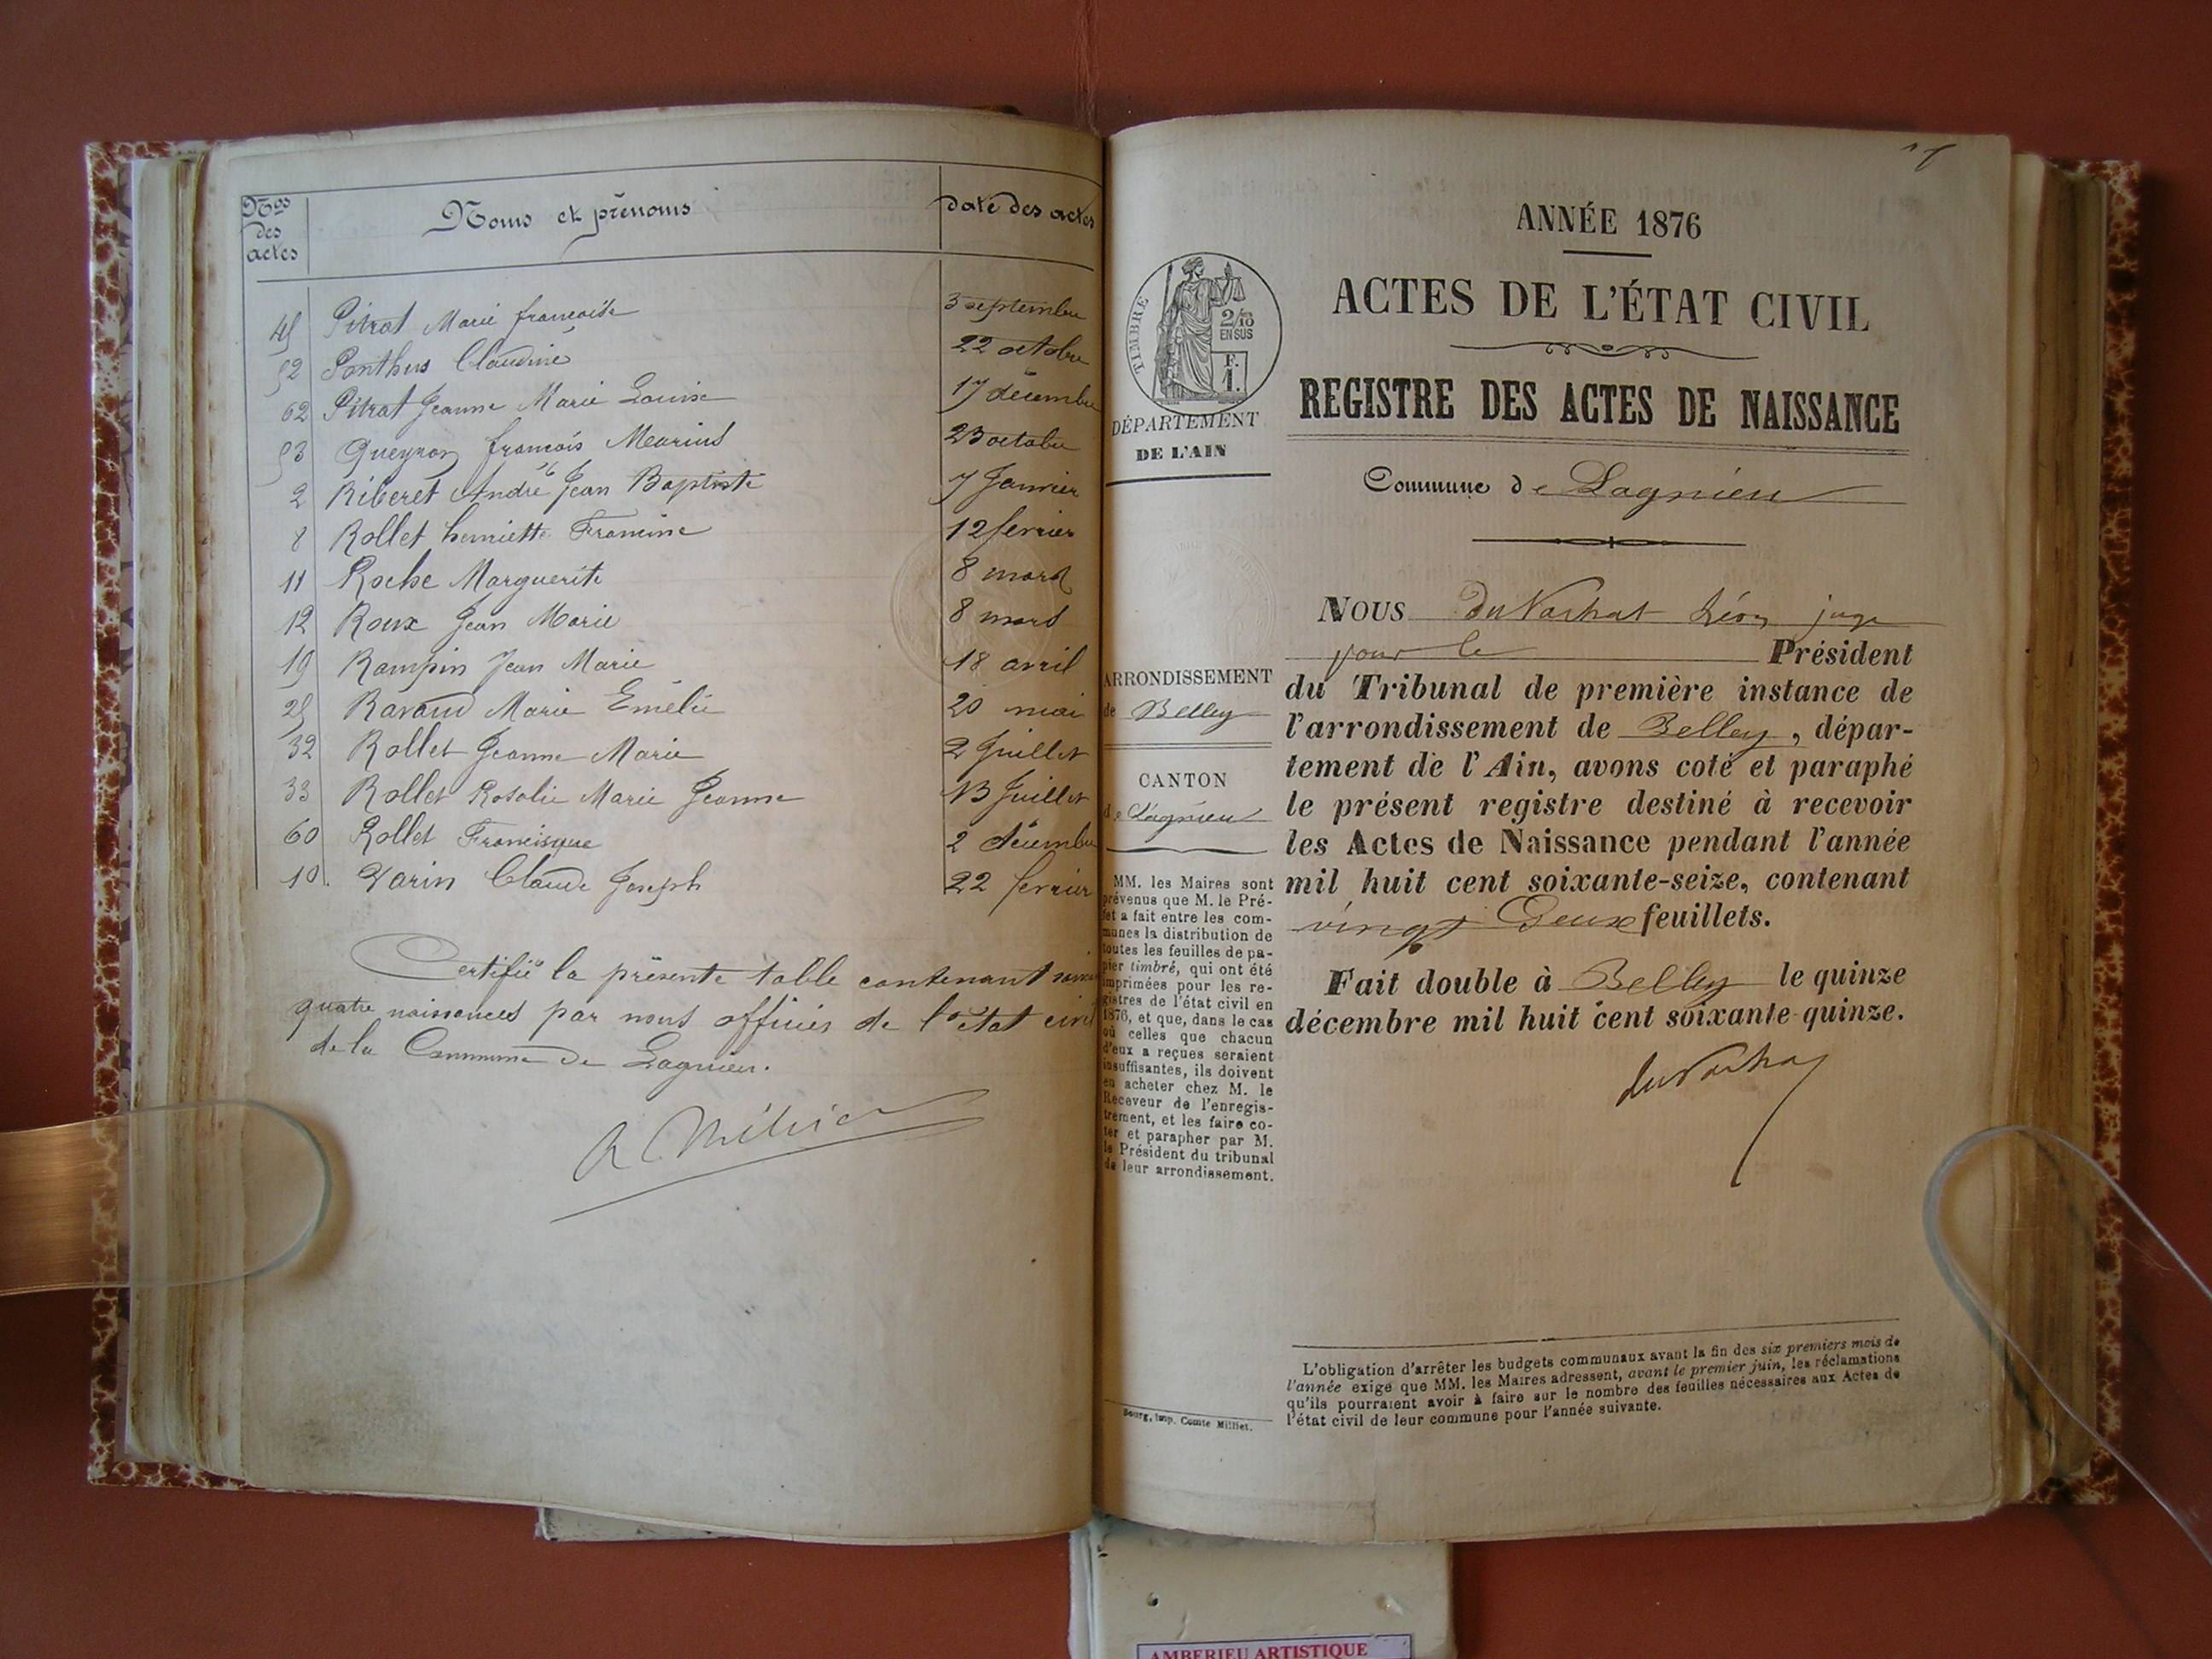 Nos des actes
Noms et prénoms
date des actes
45 Pitrat Marie françoise 3 septembre
52 Ponthus Claudine 22 octobre
62 Pitrat Jeanne Marie Louise 17 décembre
53 Queyron françois Marius 23 octobre
2 Riberet André Jean Baptiste 7 Janvier
8 Rollet henriette Francine 12 fevrier
11 Roche Marguerite 8 mars
12 Roux Jean Marie 8 mars
19 Rampin Jean Marie 18 avril
25 Ravaud Marie Emélie 20 mai
32 Rollet Jeanne Marie 2 Juillet
33 Rollet Rosalie Marie Jeanne 13 Juillet
60 Rollet Francisque 2 décembre
10. Varin Claude Joseph 22 fevrier
Certifié la présente table contenant
quatre naissances par nous officier de l'état civil
de la Commune de Lagnieu.
ANNÉE 1876
ACTES DE L'ÉTAT CIVIL
REGISTRE DES ACTES DE NAISSANCE
Commune de Lagnieu
TIMBRE
2/10
EN SUS
F.
1.
DÉPARTEMENT
DE L'AIN
ARRONDISSEMENT
de Belley
CANTON
de Lagnieu
MM. les Maires sont
prévenus que M. le Pré-
fet a fait entre les com-
munes la distribution de
toutes les feuilles de pa-
pier timbré, qui ont été
imprimées pour les re-
gistres de l'état civil en
1876, et que, dans le cas
où celles que chacun
d'eux a reçues seraient
insuffisantes, ils doivent
en acheter chez M. le
Receveur de l'enregis-
trement, et les faire co-
ter et parapher par M.
le Président du tribunal
de leur arrondissement.
Bourg, imp. Comte Milliet.
NOUS du Vachat Léon juge
pour le Président
du Tribunal de première instance de
l'arrondissement de Belley, dépar-
tement de l'Ain, avons coté et paraphé
le présent registre destiné à recevoir
les Actes de Naissance pendant l'année
mil huit cent soixante-seize, contenant
vingt Deux feuillets.
Fait double à Belley le quinze
décembre mil huit cent soixante-quinze.
du Vachat
L'obligation d'arrêter les budgets communaux avant la fin des six premiers mois de
l'année exige que MM. les Maires adressent, avant le premier juin, les réclamations
qu'ils pourraient avoir à faire sur le nombre des feuilles nécessaires aux Actes de
l'état civil de leur commune pour l'année suivante.
AMBERIEU ARTISTIQUE